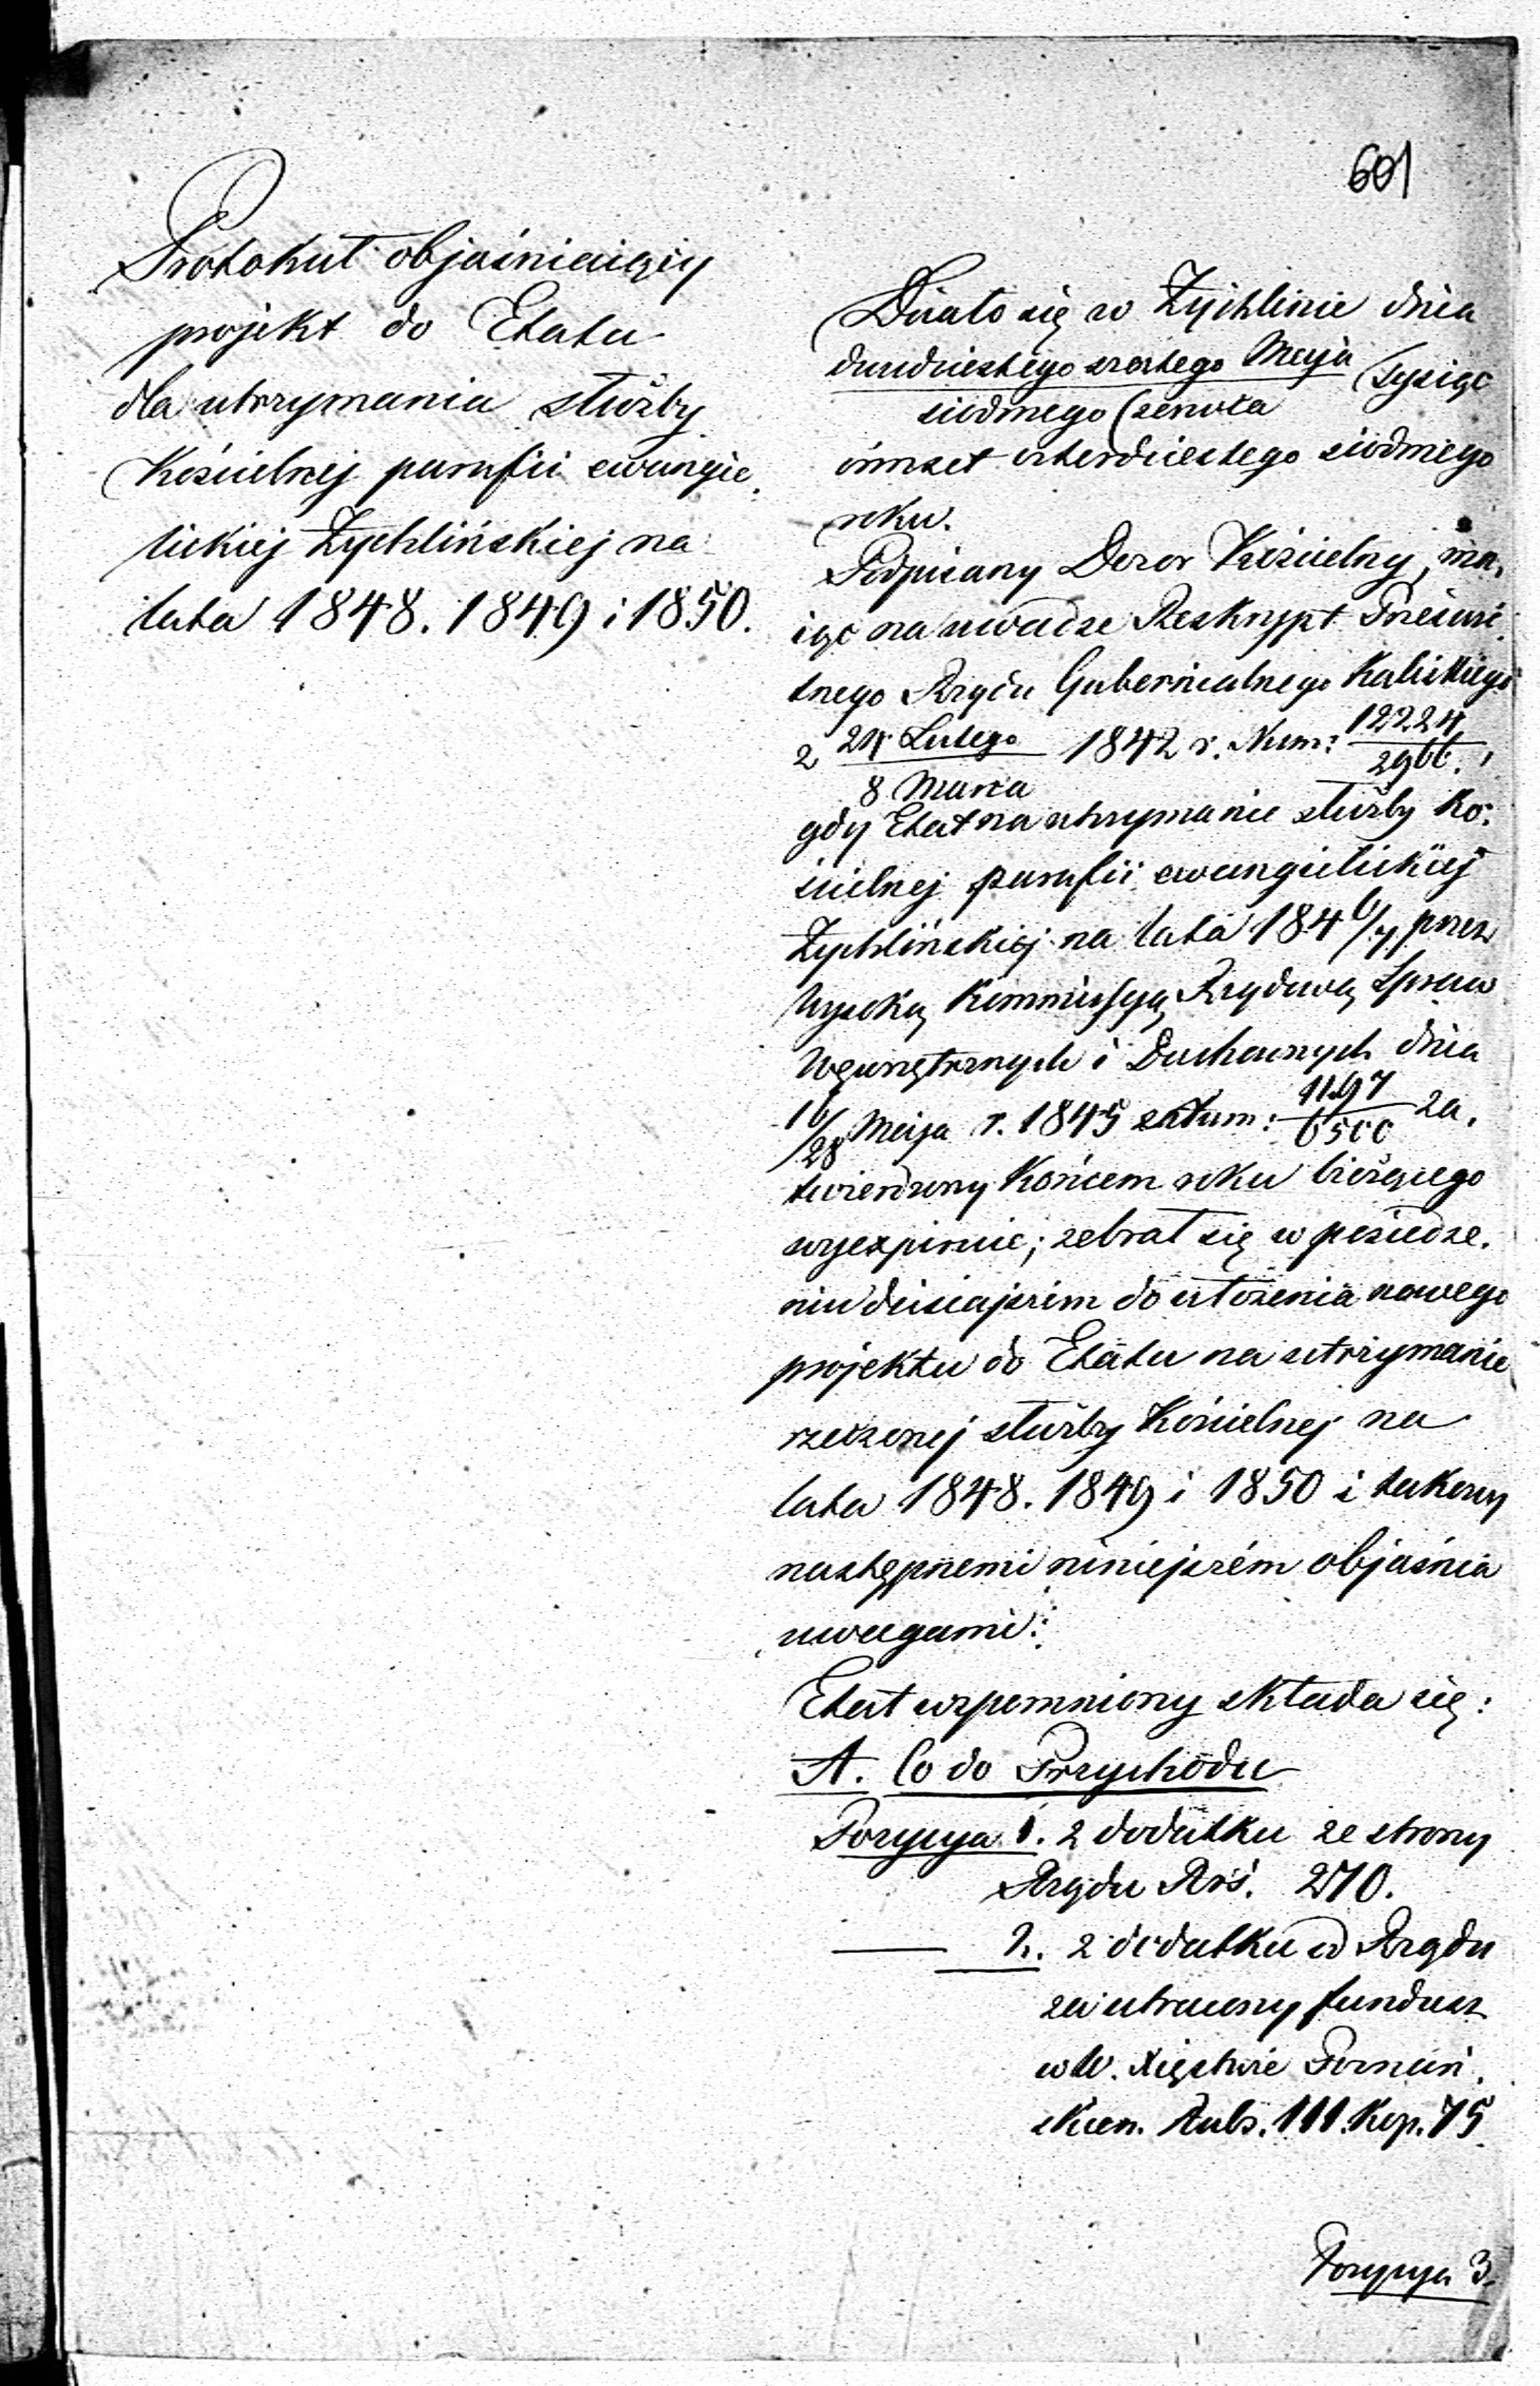 601
Protokuł objaśniaiący
projekt do Etatu
dla utrzymania służby
Kościelnej parafii ewangie-
lickiej Żychlińskiej na
lata 1848. 1849 i 1850.
Działo się w Żychlinie dnia
dwudziestego szostego Maja tysiąc
siódmego Czerwca
ośmset czterdziestego siódmego
roku.
Podpisany Dozor Kościelny, ma-
iąc na uwadze Reskrypt Prześwie-
tnego Rządu Gubernialnego Kaliskiego
z 24 Lutego / 8 Marca 1842 r. Num: 12224 / 2966.,
gdy Etat na utrzymanie służby Ko-
ścielnej parafii ewangielickiej
Żychlińskiej na lata 184 6/7 przez
Wysoką Kommissyą Rządową Spraw
Wewnętrznych i Duchownych dnia
16/28 Maja r. 1845 1197 / 6500 za-
twierdzony Końcem roku bieżącego
wyexpiruie; zebrał się w posiedze-
niu dzisiajszim do ułożenia nowego
projektu do Etatu na utrzymanie
rzeczonej służby Kościelnej na
lata 1848. 1849 i 1850 i takowy
następnemi niniejszém objaśnia
uwagami:
Etat wspomniony składa się:
A. Co do Przychodu
Pozycya 1. z dodatku ze strony
Rządu Rrś. 270.
— 2. z dodatku od Rządu
za utracony fundusz
w W. Xięstwie Poznań-
skiem. Rubs. 111. Kop. 75
Pozycya 3.